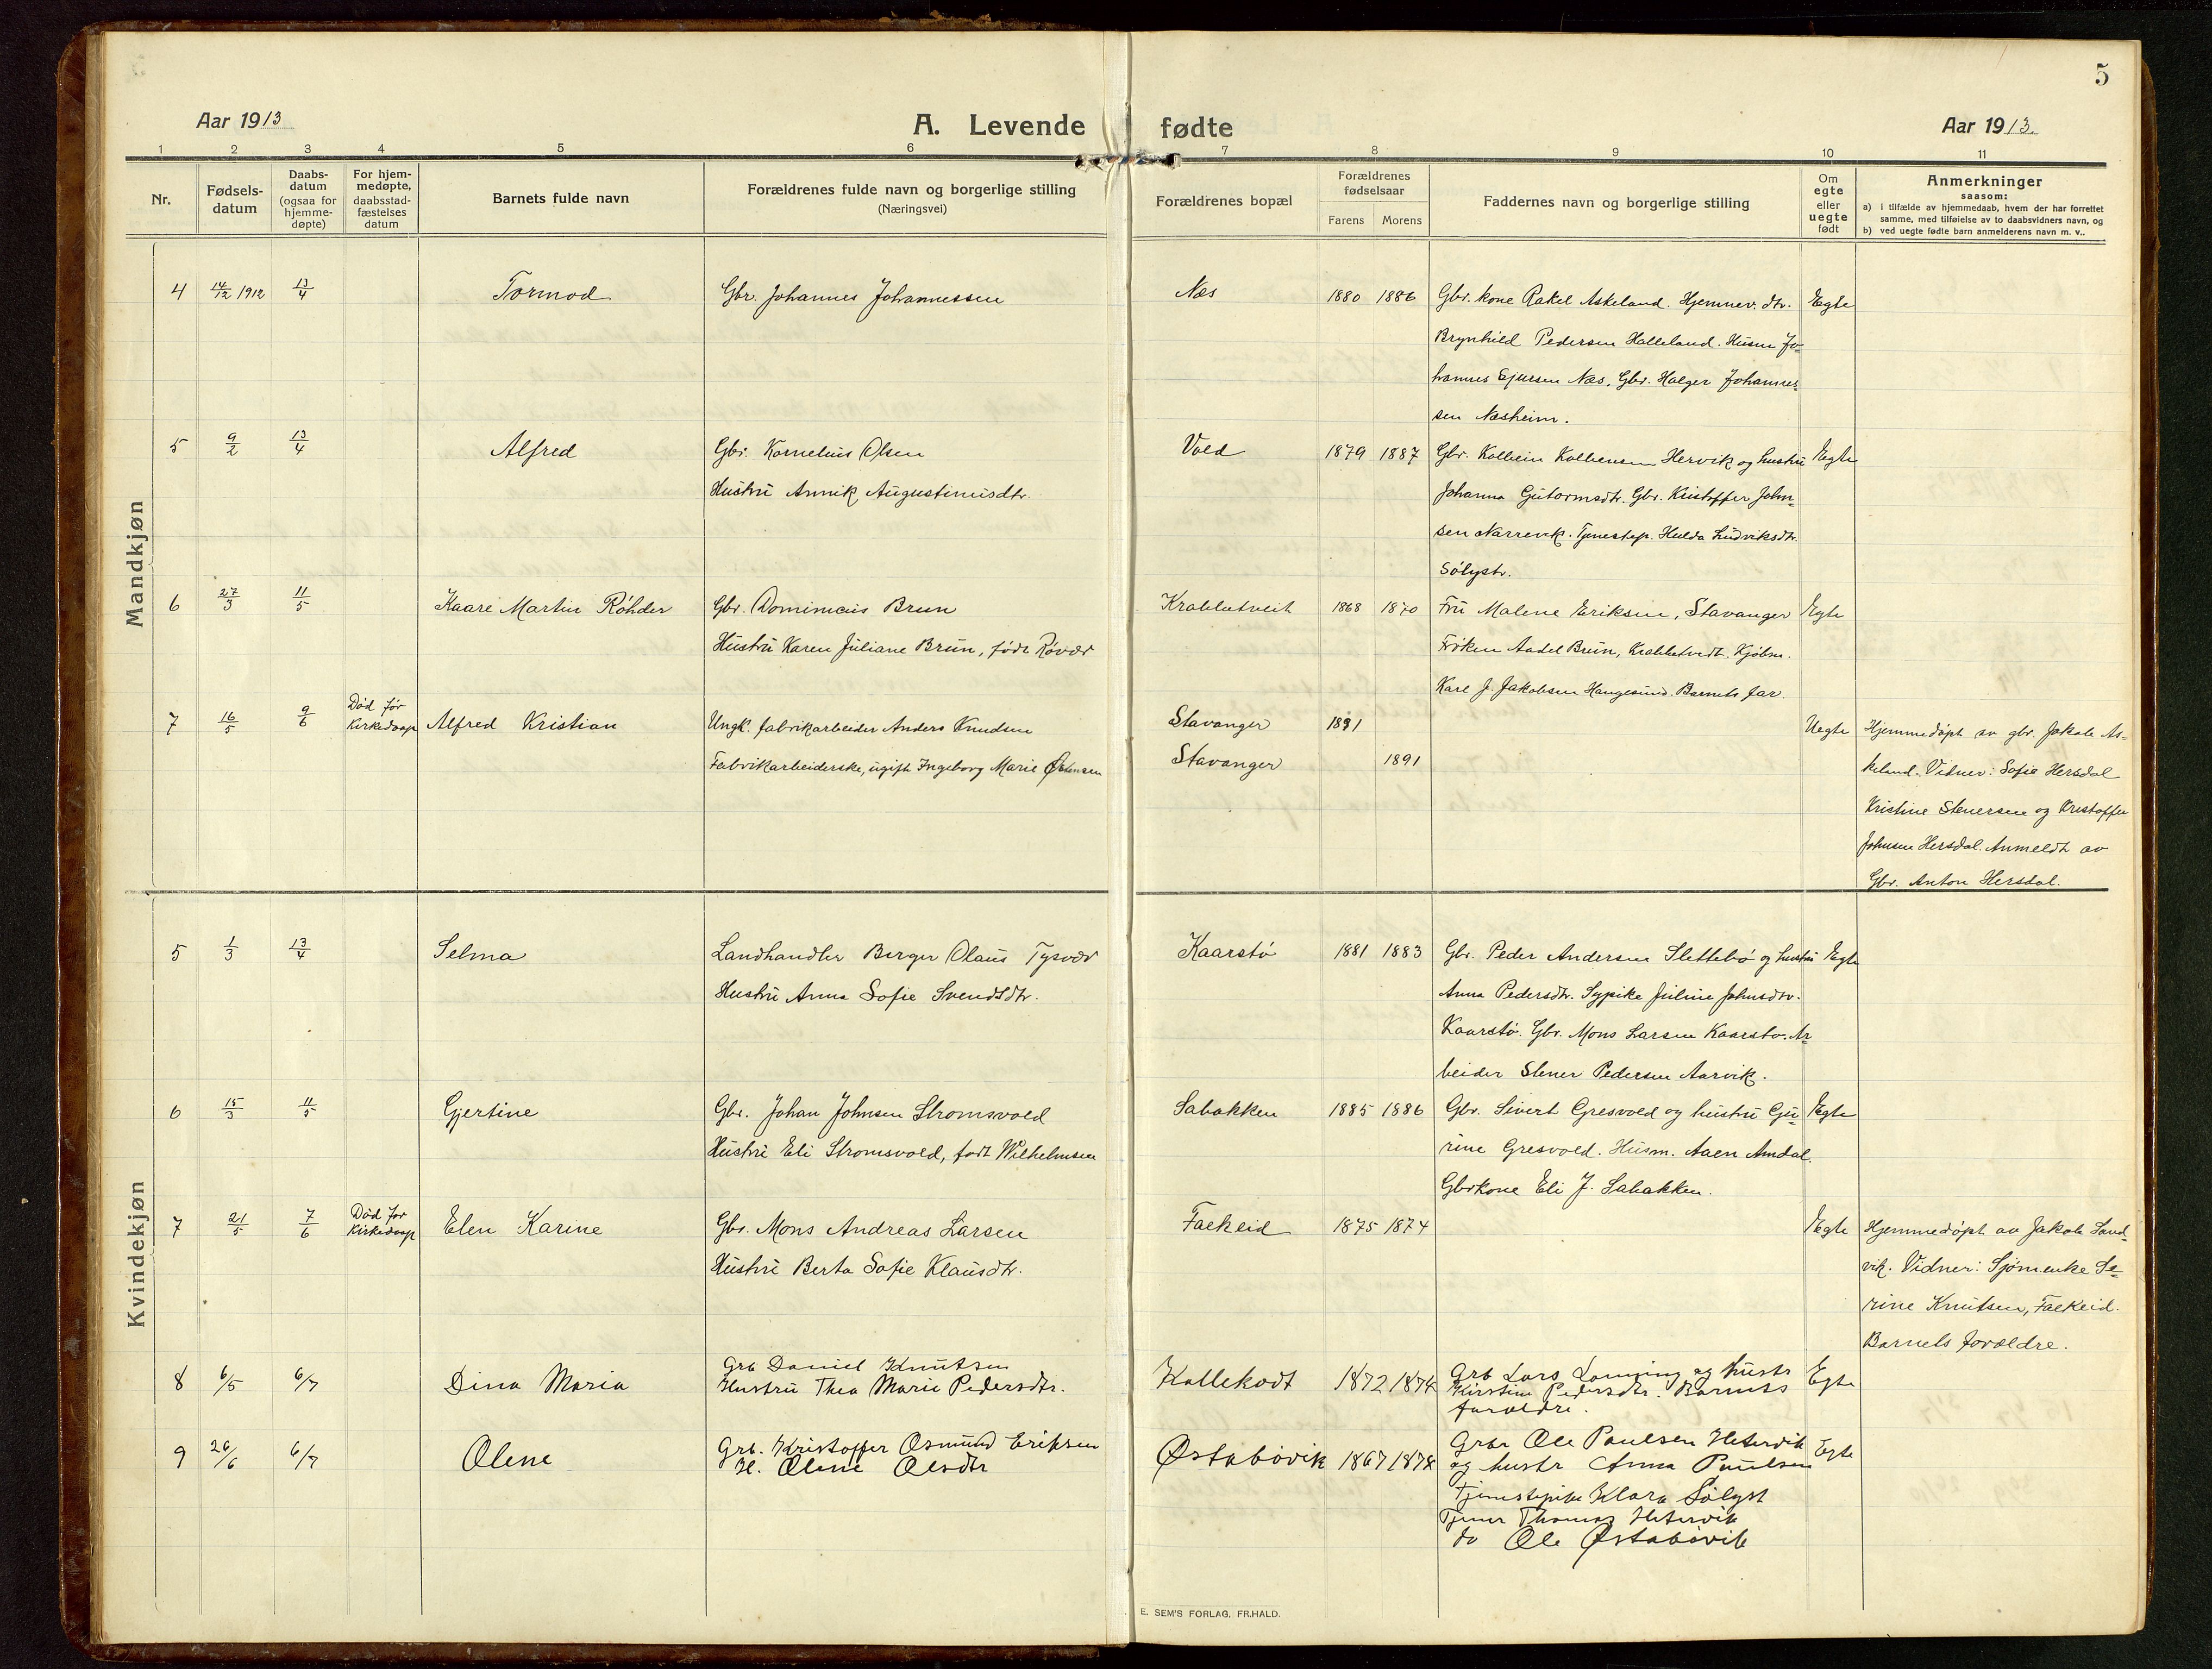 5
Aar 1913
A. Levende fødte
Aar 1913.
1 2 3 4 5 6 7 8 9 10 11
Nr.
Fødsels-
datum
Daabs-
datum
(ogsaa for
hjemme-
døpte)
For hjem-
medøpte,
daabsstad-
fæstelses
datum
Barnets fulde navn
Forældrenes fulde navn og borgerlige stilling
(Næringsvei)
Forældrenes bopæl
Forældrenes
fødselsaar
Farens Morens
Faddernes navn og borgerlige stilling
Om
egte
eller
uegte
født
Anmerkninger
saasom:
a) i tilfælde av hjemmedaab, hvem der har forrettet
samme, med tilføielse av to daabsvidners navn, og
b) ved uegte fødte barn anmelderens navn m. v..
Mandkjøn
4 14/12 1912 13/4 Tormod Gbr. Johannes Johannessen Næs 1880 1886 Gbr. kone Rakel Askeland. Hjemmev. dtr. Egte
Brynhild Pedersen Halleland. Husm Jo-
hannes Ejursen Næs, Gbr. Holger Johannes-
sen Næsheim.
5 9/2 13/4 Alfred Gbr. Kornelius Olsen Vold 1879 1887 Gbr. Kolbein Kolbensen Hervik og hustru Egte
Hustru Annik Augustinusdtr. Johanna Gutormsdtr. Gbr. Kristoffer John-
sen Narrevik. Tjenestep. Hulda Ludviksdtr.
Sólystr.
6 27/3 11/5 Kaare Martin Röhder Gbr. Dominicus Brun Krabbetveit 1868 1870 Fru Malene Eriksen, Stavanger Egte
Hustru Karen Juliane Brun, födt Rövær Fröken Aadel Brun, Krabbetvedt. Kjöbm.
Karl J. Jakobsen Haugesund. Barnets far.
7 16/5 9/6 Död för Kirkedaap Alfred Kristian Ungk. fabrikarbeider Anders Knudsen Stavanger 1891 Uegte Hjemmedöpt av gbr. Jakob As-
Fabrikarbeiderske, ugift Ingeborg Marie Østensen Stavanger 1891 keland. Vidner: Sofie Hersdal
Kristine Stenersen og Kristoffer
Johnsen Hersdal. Anmeldt av
Gbr. Anton Hersdal.
Kvindekjøn
5 1/3 13/4 Selma Landhandler Berger Olaus Tysvær Kaarstö 1881 1883 Gbr. Peder Andersen Slettebö og hustru Egte
Hustru Anna Sofie Svendsdtr. Anna Pedersdtr. Sypike Juline Johnsdtr.
Kaarstö. Gbr. Mons Larsen Kaarstö. Ar-
beider Stener Pedersen Aarvik.
6 15/3 11/5 Gjertine Gbr. Johan Johnsen Stromsvold Sabakken 1885 1886 Gbr. Sivert Gresvold og hustru Gu- Egte
Hustru Eli Stromsvold, født Wilhelmsen rine Gresvold. Husm. Aaen Amdal.
Gbrkone Eli J. Sabakken.
7 21/5 7/6 Död för Kirkedaap Elen Karine Gbr. Mons Andreas Larsen Falkeid 1875 1874 Egte Hjemmedöpt av Jakob Sand-
Hustru Berta Sofie Klausdtr. vik. Vidner: Sjömenke Se-
rine Knutsen, Falkeid.
Barnets forældre.
8 6/5 6/7 Dina Maria Grb Daniel Knutsen Kallekodt 1872 1874 Grb Lars Lonning og hustr Egte
Hustru Thea Marie Pedersdtr. Kirstine Pedersdtr. Barnets
forældre.
9 26/6 6/7 Olene Grb. Kristoffer Osmund Eriksen Østabövik 1867 1878 Grbr Ole Paulsen Hetervik Egte
H. Olene Olsdtr og hustr Anna Paulsen
Tjenestepike Klara Sölyst
Tjener Thomas Hetervik
do Ole Østabövik
E. SEM'S FORLAG, FR.HALD.